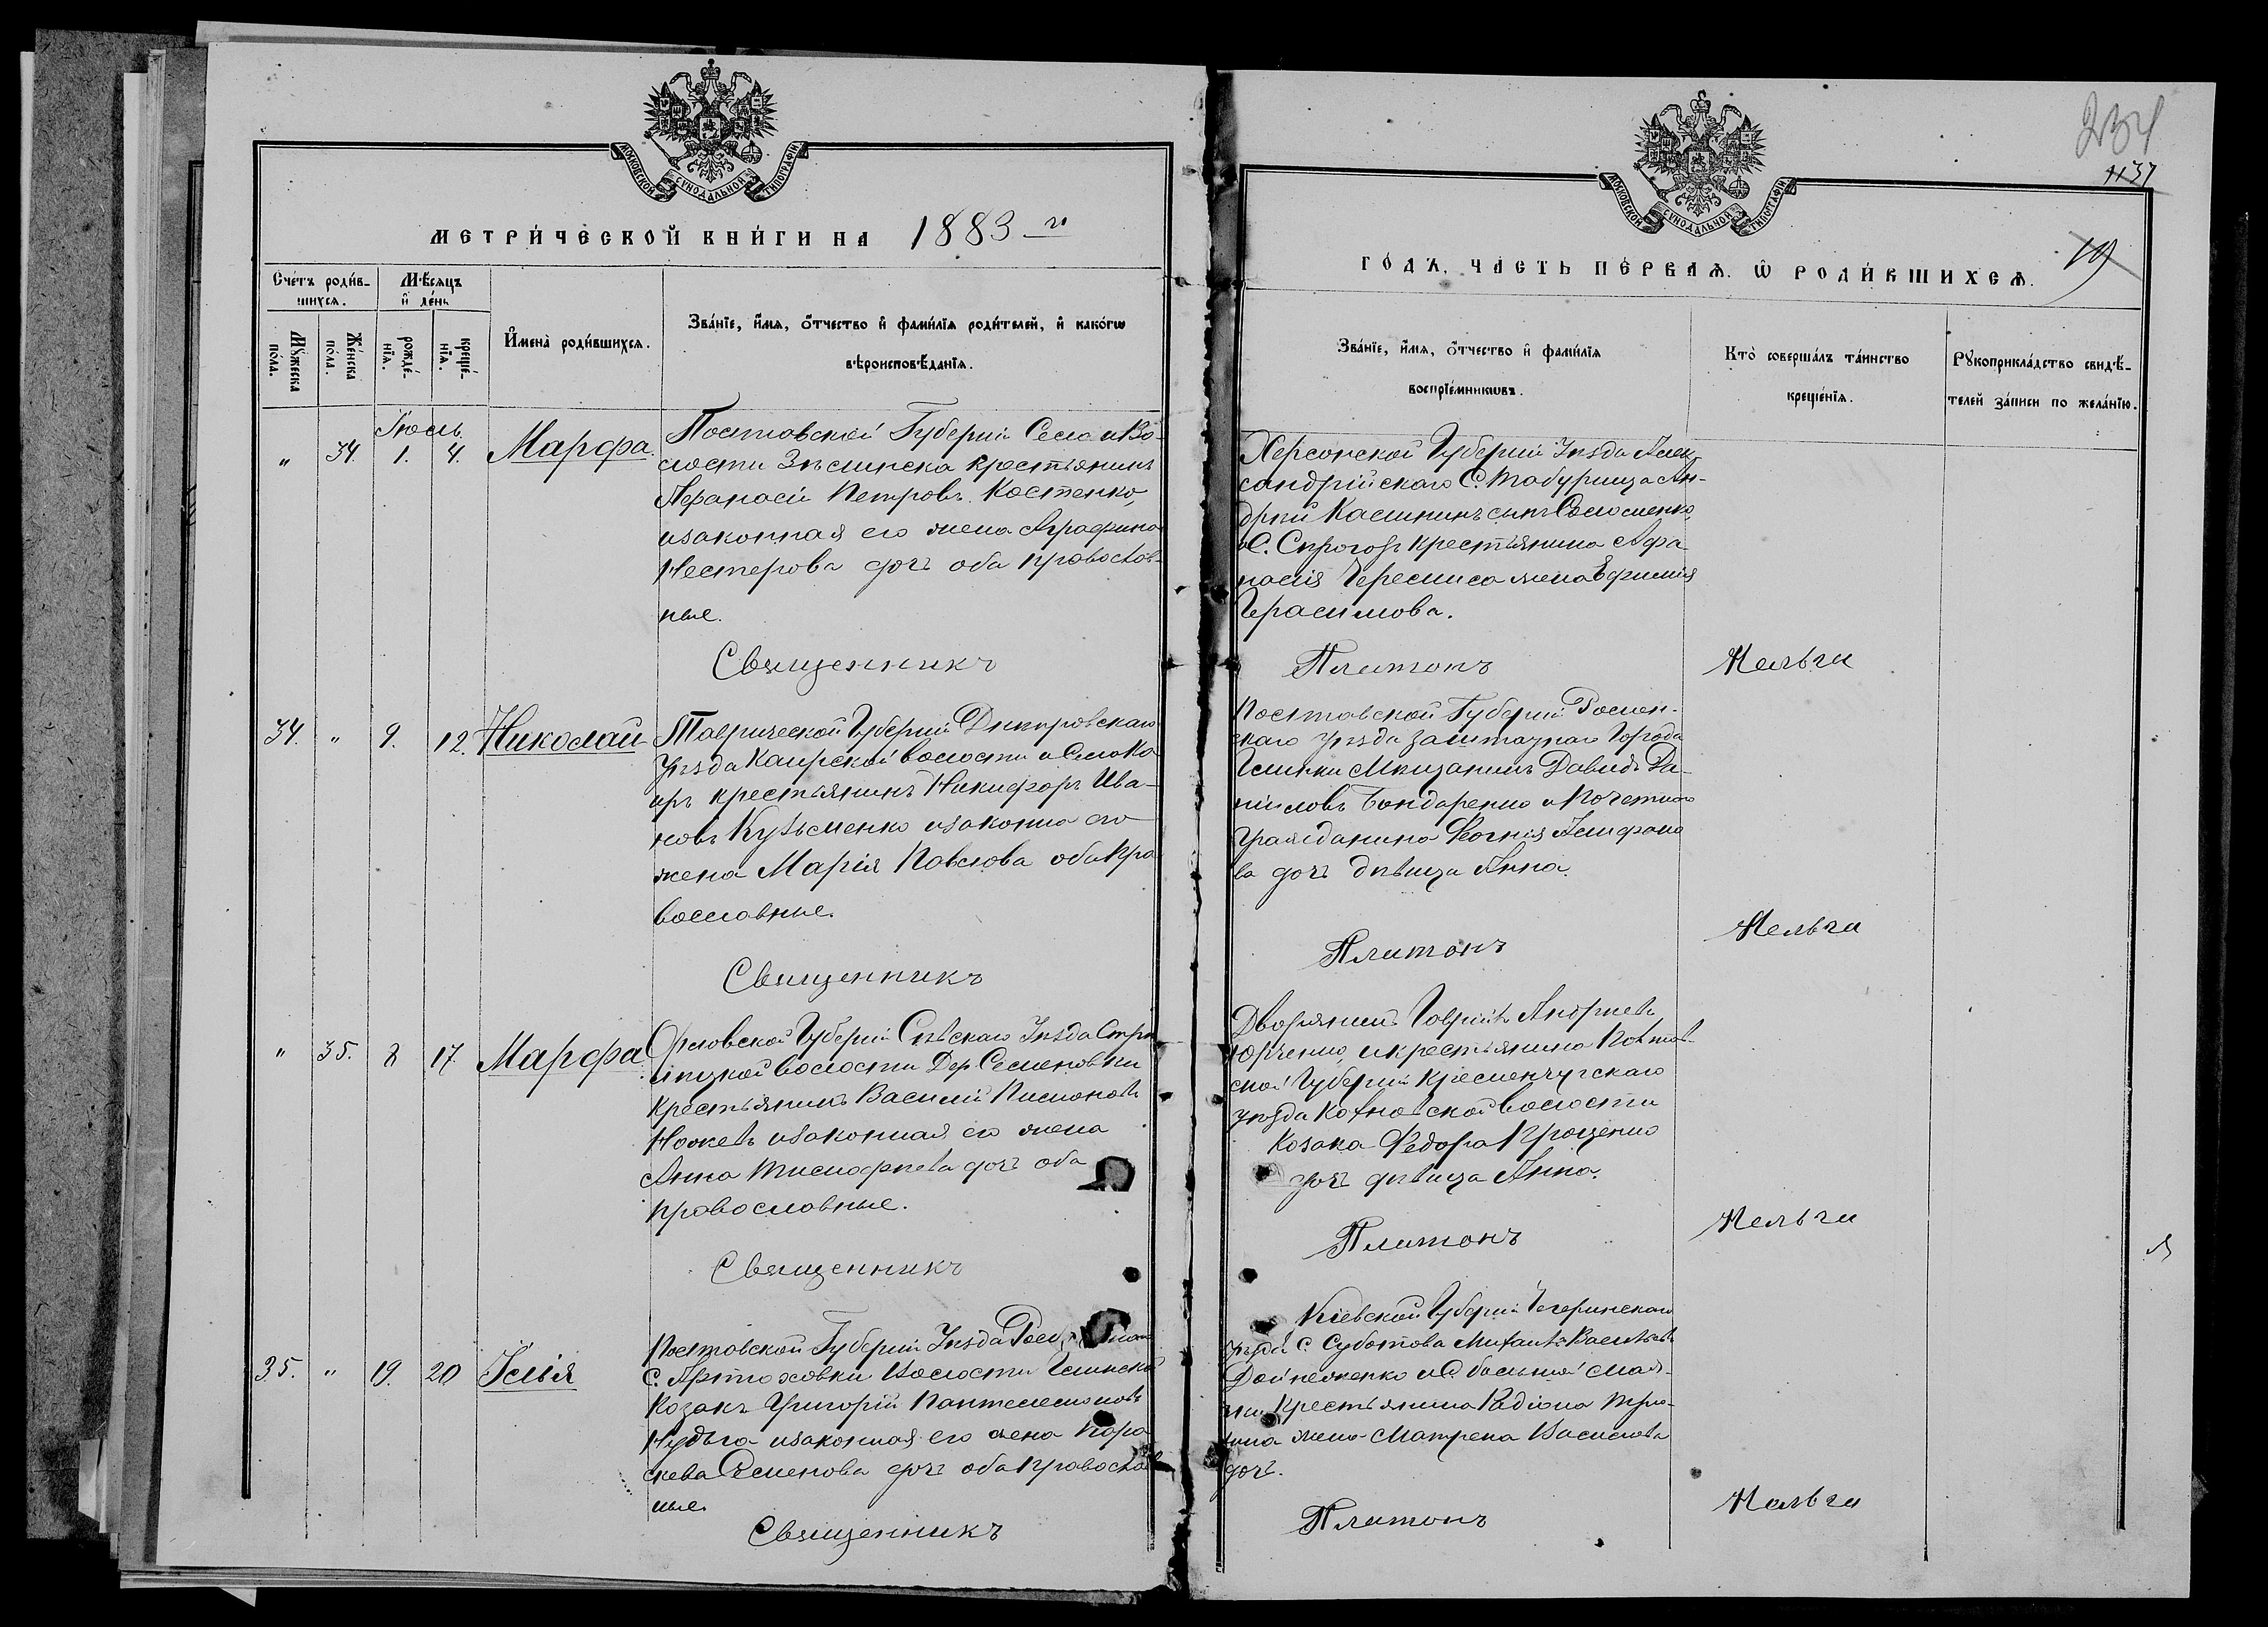 МОСКОВСКОЙ СѴНОДАЛЬНОЙ ТИПОГРАФІИ
МЕТРИ́ЧЕСКОЙ КНИ́ГИ НА 1883 г.
Сче́тъ роди́в-
шихся.
Мѣ́сяцъ
и҆ де́нь
Мꙋ́жеска
по́ла.
Же́нска
по́ла.
рожде́-
нїя.
креще́-
нїя.
И҆мена̀ роди́вшихся.
Зва́нїе, и҆́мя, ѻ҆́тчество и҆ фами́лїя роди́телей, и҆ како́гѡ
вѣроисповѣ́данїя.
Іюль
„ 34. 1. 4. Марфа.
Полтавской Губерніи Село и Во-
лости крестьянинъ
Афанасій Петровъ Костенко,
изаконная его жена Аграфина
Нестерова дочь оба православ-
ные.
Священникъ
34. „ 9. 12. Николай
Таврической Губерніи Днѣпровскаго
уѣзда Каирской волости и Села Ка
иръ крестьянинъ Никифоръ Ива-
новъ Кузьменко изаконна его
жена Марія Павлова оба пра
вославные.
Священникъ
„ 35. 8 17. Марфа
Орловской Губерніи Сѣвскаго Уѣзда
волости Дер. Семеновки
Крестьянинъ Василій
изаконная его жена
Анна Тимофѣева дочь оба
православные.
Священникъ
35. „ 19. 20 Илія
Полтавской Губерніи Уѣзда
С. Артюховки Волости Глинской
Козакъ Григорій Пантелемоновъ
Нудьга изаконная его жена Пара
скева Семенова дочь оба Православ
ные.
Священникъ
МОСКОВСКОЙ СѴНОДАЛЬНОЙ ТИПОГРАФІИ
234
1137
19
ГО́ДЪ, ЧА́СТЬ ПЕ́РВАѦ. Ѿ РОДИ́ВШИХСѦ.
Зва́нїе, и҆́мя, ѻ҆́тчество и҆ фами́лїя
воспрїе́мникѡвъ.
Кто̀ соверша́лъ та́инство
креще́нїя.
Рꙋкоприкла́дство свидѣ́-
телей за́писи по жела́нїю.
Херсонской Губерніи Уѣзда Алек-
сандрійскаго С. Табурища Ан-
дрей Калининъ сынъ
и С. крестьянина Афа
насія жена Ефимія
Герасимова.
Платонъ Мельги
Полтавской Губерніи Ромен-
скаго уѣзда заштатнаго Города
Глинки Мѣщанинъ Давидъ Да-
ніиловъ Бондаренко и Почетнаго
гражданина
ва дочь дѣвица Анна.
Платонъ Мельги
Дворянинъ Гавріилъ Андреевъ
Юрченко, и крестьянина Полтав-
ской Губерніи Кременчугскаго
уѣзда волости
Козака Федора Проценко
дочь дѣвица Анна.
Платонъ Мельги
Кіевской Губерніи Чегеринскаго
уѣзда С. Суботова Михаилъ Васильевъ
и С. большой Мая-
чки Крестьянина Радіона
жена Матрена Василева
дочь.
Платонъ Мельги